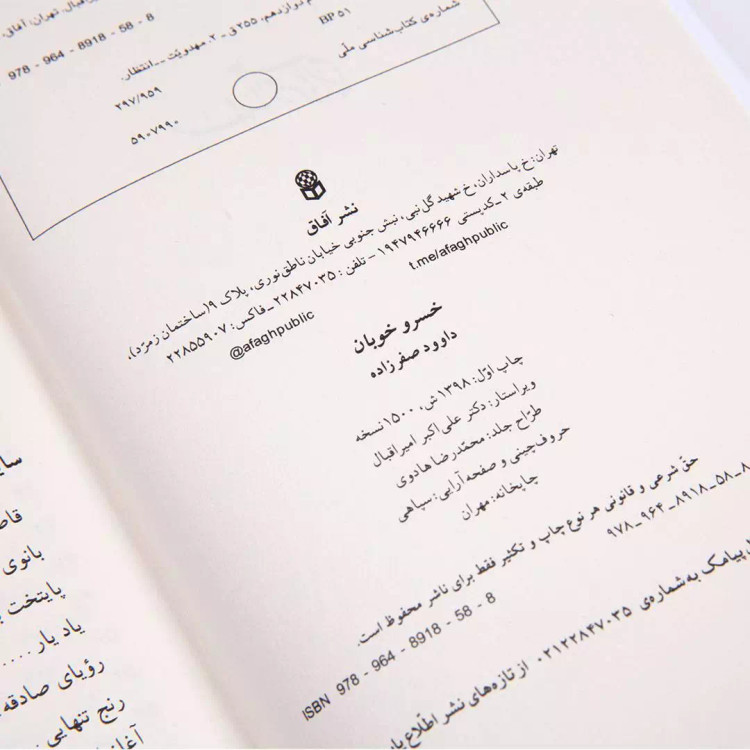 تهران، آفاق.
978 - 964 - 8918 - 58 - 8
دوازدهم، ۲۵۵ق ـ ۲. مهدویّت ــ انتظار.
BP ۵۱
۲۹۷/۹۵۹
شماره‌ی کتاب‌شناسی ملّی
۵۹۰۷۹۹۰
نشر آفاق
تهران: خ پاسداران، خ شهید گل‌نبی، نبش جنوبی خیابان ناطق‌نوری، پلاک ۹ (ساختمان زمرّد)،
طبقه‌ی ۲ ـ کدپستی ۱۹۴۷۹۴۶۶۶۶ ـ تلفن: ۲۲۸۴۷۰۳۵ ـ فاکس: ۲۲۸۵۵۹۰۷
t.me/afaghpublic
@afaghpublic
خسرو خوبان
داوود صفرزاده
چاپ اوّل: ۱۳۹۸ ش، ۱۵۰۰ نسخه
ویراستار: دکتر علی‌اکبر امیراقبال
طرّاح جلد: محمّدرضا هادوی
حروف‌چینی و صفحه آرایی: سپاهی
چاپخانه: مهران
حقّ شرعی و قانونی هر نوع چاپ و تکثیر فقط برای ناشر محفوظ است.
۹۷۸ ـ ۹۶۴ ـ ۸۹۱۸ ـ ۵۸ ـ ۸
ISBN 978 - 964 - 8918 - 58 - 8
پیامک به شماره‌ی ۰۲۱۲۲۸۴۷۰۳۵ از تازه‌های نشر اطّلاع
بانوی
پایتخت
یاد یار . . . . .
رؤیای صادقه
رنج تنهایی